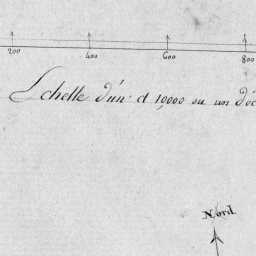 200 400 600 800
Echelle d'un à 10,000 ou un déc
Nord.